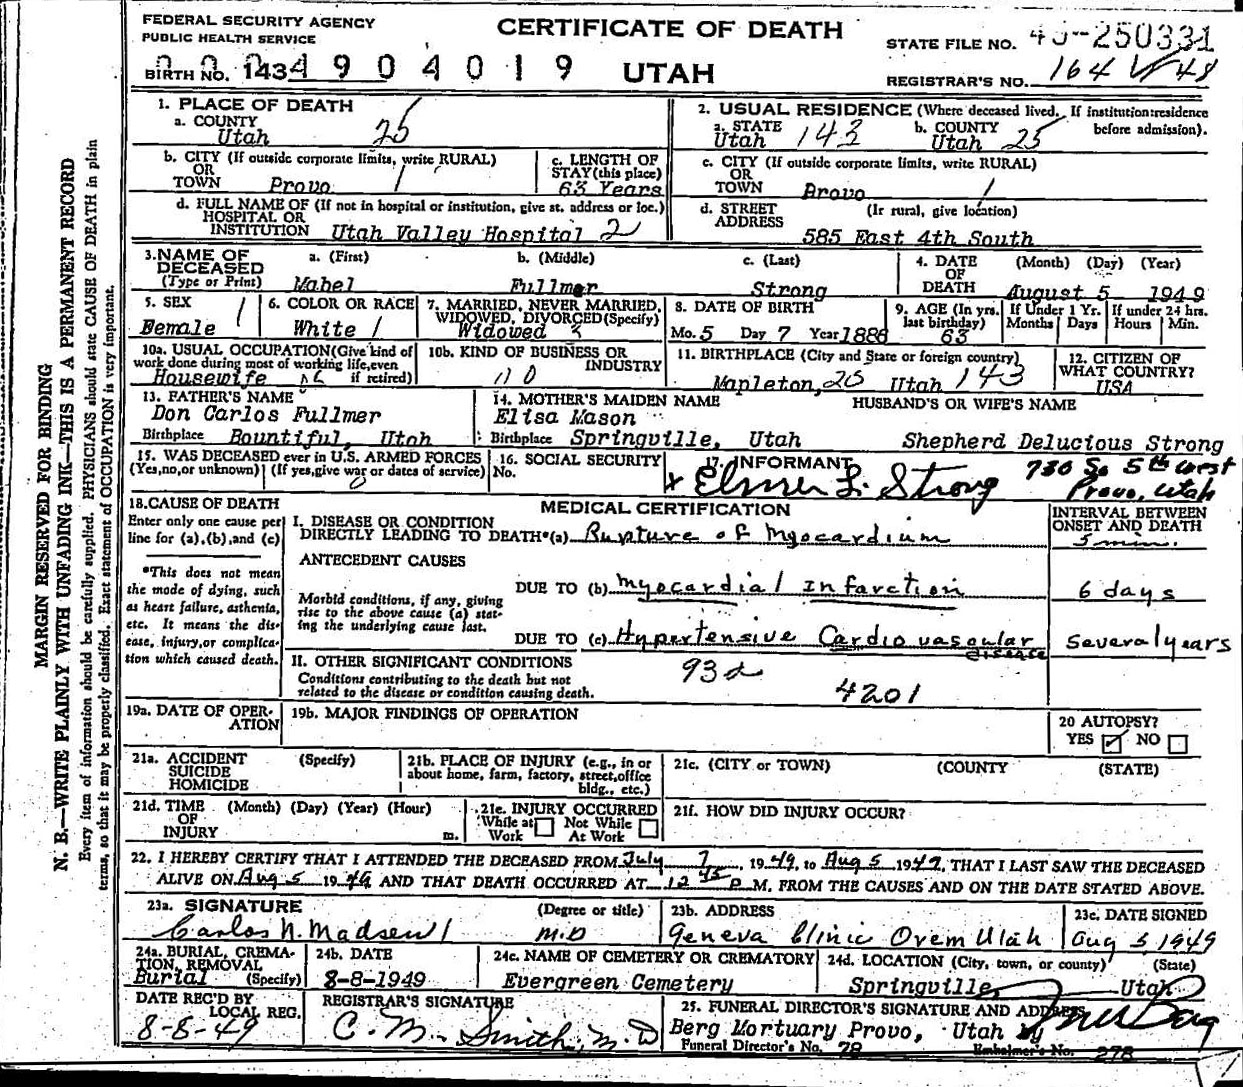 FEDERAL SECURITY AGENCY
PUBLIC HEALTH SERVICE
CERTIFICATE OF DEATH
STATE FILE NO. 49-250331
BIRTH NO. 1434904019
UTAH
REGISTRAR'S NO. 164
1. PLACE OF DEATH
a. COUNTY
Utah 25
b. CITY (If outside corporate limits, write RURAL)
OR
TOWN Provo 1
c. LENGTH OF
STAY (this place)
63 Years
d. FULL NAME OF (If not in hospital or institution, give st. address or loc.)
HOSPITAL OR
INSTITUTION Utah Valley Hospital 2
2. USUAL RESIDENCE (Where deceased lived. If institution:residence
before admission).
a. STATE b. COUNTY
Utah 143 Utah 25
c. CITY (If outside corporate limits, write RURAL)
OR
TOWN Provo 1
d. STREET (If rural, give location)
ADDRESS
585 East 4th South
3. NAME OF a. (First) b. (Middle) c. (Last)
DECEASED
(Type or Print) Mabel Fullmer Strong
4. DATE (Month) (Day) (Year)
OF
DEATH August 5 1949
5. SEX
Female 1
6. COLOR OR RACE
White 1
7. MARRIED, NEVER MARRIED,
WIDOWED, DIVORCED(Specify)
Widowed 3
8. DATE OF BIRTH
Mo. 5 Day 7 Year
9. AGE (In yrs.
last birthday)
63
If Under 1 Yr. If under 24 hrs.
Months Days Hours Min.
10a. USUAL OCCUPATION(Give kind of
work done during most of working life,even
if retired)
Housewife
10b. KIND OF BUSINESS OR
INDUSTRY
11. BIRTHPLACE (City and State or foreign country)
Mapleton, 25 Utah 143
12. CITIZEN OF
WHAT COUNTRY?
USA
13. FATHER'S NAME
Don Carlos Fullmer
Birthplace Bountiful, Utah
14. MOTHER'S MAIDEN NAME
Elisa Mason
Birthplace Springville, Utah
HUSBAND'S OR WIFE'S NAME
Shepherd Delucious Strong
15. WAS DECEASED ever in U.S. ARMED FORCES
(Yes,no,or unknown) (If yes,give war or dates of service)
0
16. SOCIAL SECURITY
No.
17. INFORMANT
x Elmer L. Strong
730 So 5th West
Provo, Utah
18. CAUSE OF DEATH
Enter only one cause per
line for (a),(b),and (c)
*This does not mean
the mode of dying, such
as heart failure, asthenia,
etc. It means the dis-
ease, injury,or complica-
tion which caused death.
MEDICAL CERTIFICATION
INTERVAL BETWEEN
ONSET AND DEATH
I. DISEASE OR CONDITION
DIRECTLY LEADING TO DEATH*(a) Rupture of Myocardium 5 min.
ANTECEDENT CAUSES
Morbid conditions, if any, giving
rise to the above cause (a) stat-
ing the underlying cause last.
DUE TO (b) Myocardial Infarction 6 days
DUE TO (c) Hypertensive Cardiovascular
disease several years
II. OTHER SIGNIFICANT CONDITIONS
Conditions contributing to the death but not
related to the disease or condition causing death.
93d
4201
19a. DATE OF OPER-
ATION
19b. MAJOR FINDINGS OF OPERATION
20 AUTOPSY?
YES ☑ NO ☐
21a. ACCIDENT (Specify)
SUICIDE
HOMICIDE
21b. PLACE OF INJURY (e.g., in or
about home, farm, factory, street,office
bldg., etc.)
21c. (CITY or TOWN) (COUNTY) (STATE)
21d. TIME (Month) (Day) (Year) (Hour)
OF
INJURY m.
21e. INJURY OCCURRED
While at ☐ Not While ☐
Work At Work
21f. HOW DID INJURY OCCUR?
22. I HEREBY CERTIFY THAT I ATTENDED THE DECEASED FROM July 7, 1949, to Aug 5 1949, THAT I LAST SAW THE DECEASED
ALIVE ON Aug 5 1949 AND THAT DEATH OCCURRED AT 12 45 P M, FROM THE CAUSES AND ON THE DATE STATED ABOVE.
23a. SIGNATURE (Degree or title)
Carlos N. Madsen M.D
23b. ADDRESS
Geneva Clinic Orem Utah
23c. DATE SIGNED
Aug 5 1949
24a. BURIAL, CREMA-
TION, REMOVAL
(Specify)
Burial
24b. DATE
8-8-1949
24c. NAME OF CEMETERY OR CREMATORY
Evergreen Cemetery
24d. LOCATION (City, town, or county) (State)
Springville, Utah
DATE REC'D BY
LOCAL REG.
8-8-49
REGISTRAR'S SIGNATURE
C. M. Smith, M.D
25. FUNERAL DIRECTOR'S SIGNATURE AND ADDRESS
Berg Mortuary Provo, Utah by
Funeral Director's No. 78 Embalmer's No. 278
MARGIN RESERVED FOR BINDING
N. B.—WRITE PLAINLY WITH UNFADING INK—THIS IS A PERMANENT RECORD
Every item of information should be carefully supplied. PHYSICIANS should state CAUSE OF DEATH in plain
terms, so that it may be properly classified. Exact statement of OCCUPATION is very important.